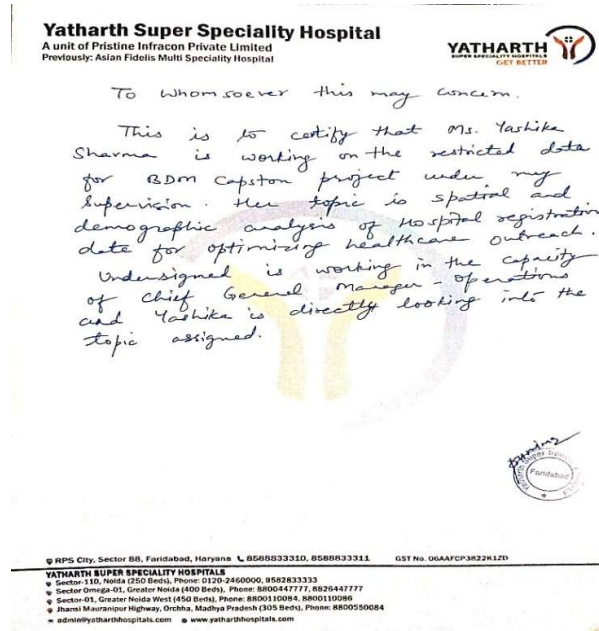 Yatharth Super Speciality Hospital
A unit of Pristine Infracon Private Limited
Previously: Asian Fidelis Multi Speciality Hospital
YATHARTH
SUPER SPECIALITY HOSPITALS
GET BETTER
To whomsoever this may concern.
This is to certify that Ms. Yashika
Sharma is working on the restricted data
for BDM Capston project under my
Supervision. Her topic is spatial and
demographic analysis of Hospital registration
data for optimizing healthcare outreach.
Undersigned is working in the capacity
of Chief General Manager - operations
and Yashika is directly looking into the
topic assigned.
Yatharth Super
Faridabad
RPS City, Sector 88, Faridabad, Haryana 8588833310, 8588833311 GST No. 06AAFCP3822K1ZD
YATHARTH SUPER SPECIALITY HOSPITALS
Sector-110, Noida (250 Beds), Phone: 0120-2460000, 9582833333
Sector Omega-01, Greater Noida (400 Beds), Phone: 8800447777, 8826447777
Sector-01, Greater Noida West (450 Beds), Phone: 8800110084, 8800110086
Jhansi Mauranipur Highway, Orchha, Madhya Pradesh (305 Beds), Phone: 8800550084
admin@yatharthhospitals.com www.yatharthhospitals.com